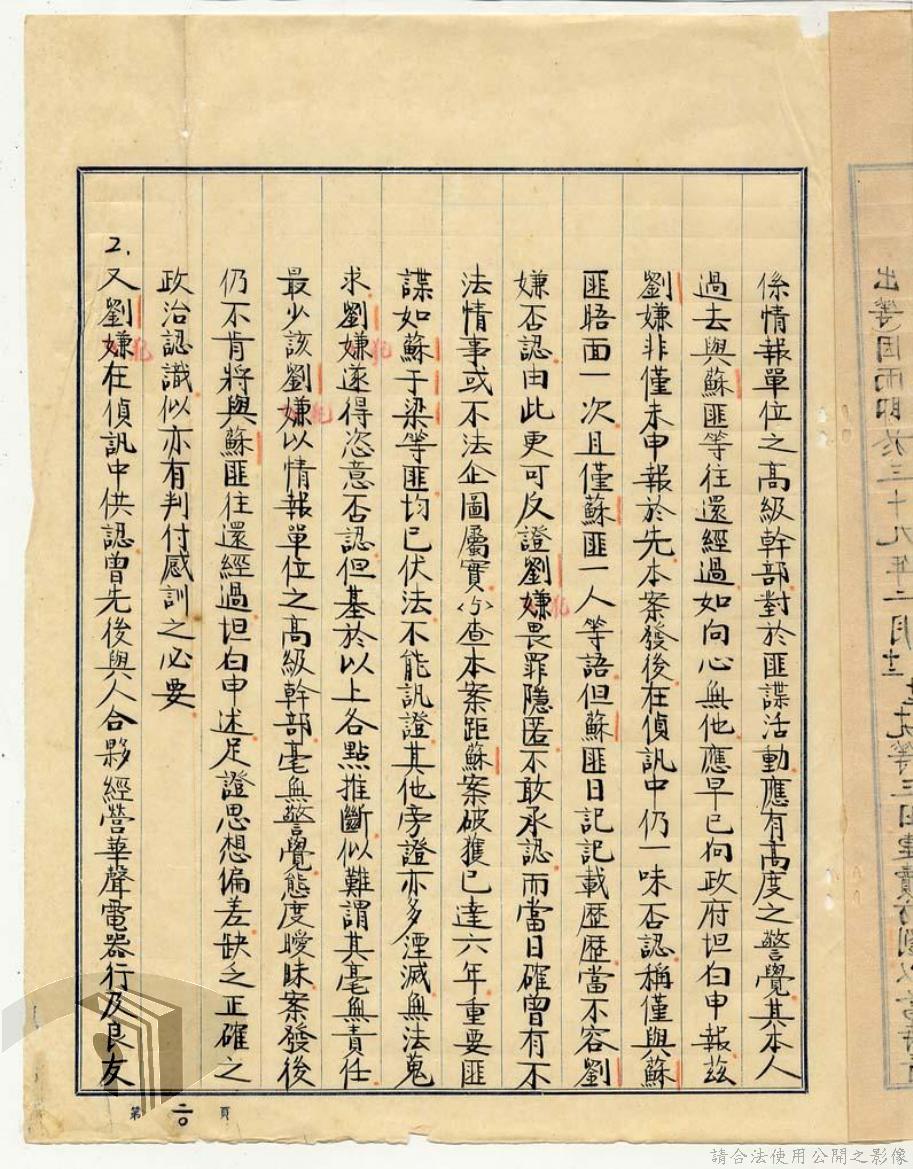 係情報單位之高級幹部對於匪諜活動應有高度之警覺其本人
過去與蘇匪等往還經過如向心無他應早已向政府坦白申報茲
劉嫌非僅未申報於先本案發後在偵訊中仍一味否認稱僅與蘇
匪晤面一次且僅蘇匪一人等語但蘇匪日記記載歷歷當不容劉
嫌否認由此更可反證劉嫌畏罪隱匿不敢承認而當日確曾有不
法情事或不法企圖屬實(5)查本案距蘇案破獲已達六年重要匪
諜如蘇于梁等匪均已伏法不能訊證其他旁證亦多湮滅無法蒐
求劉嫌遂得恣意否認但基於以上各點推斷似難謂其毫無責任
最少該劉嫌以情報單位之高級幹部毫無警覺態度曖昧案發後
仍不肯將與蘇匪往還經過坦白申述足證思想偏差缺乏正確之
政治認識似亦有判付感訓之必要
2.又劉嫌在偵訊中供認曾先後與人合夥經營華聲電器行及良友
第 二〇 頁
請合法使用公開之影像